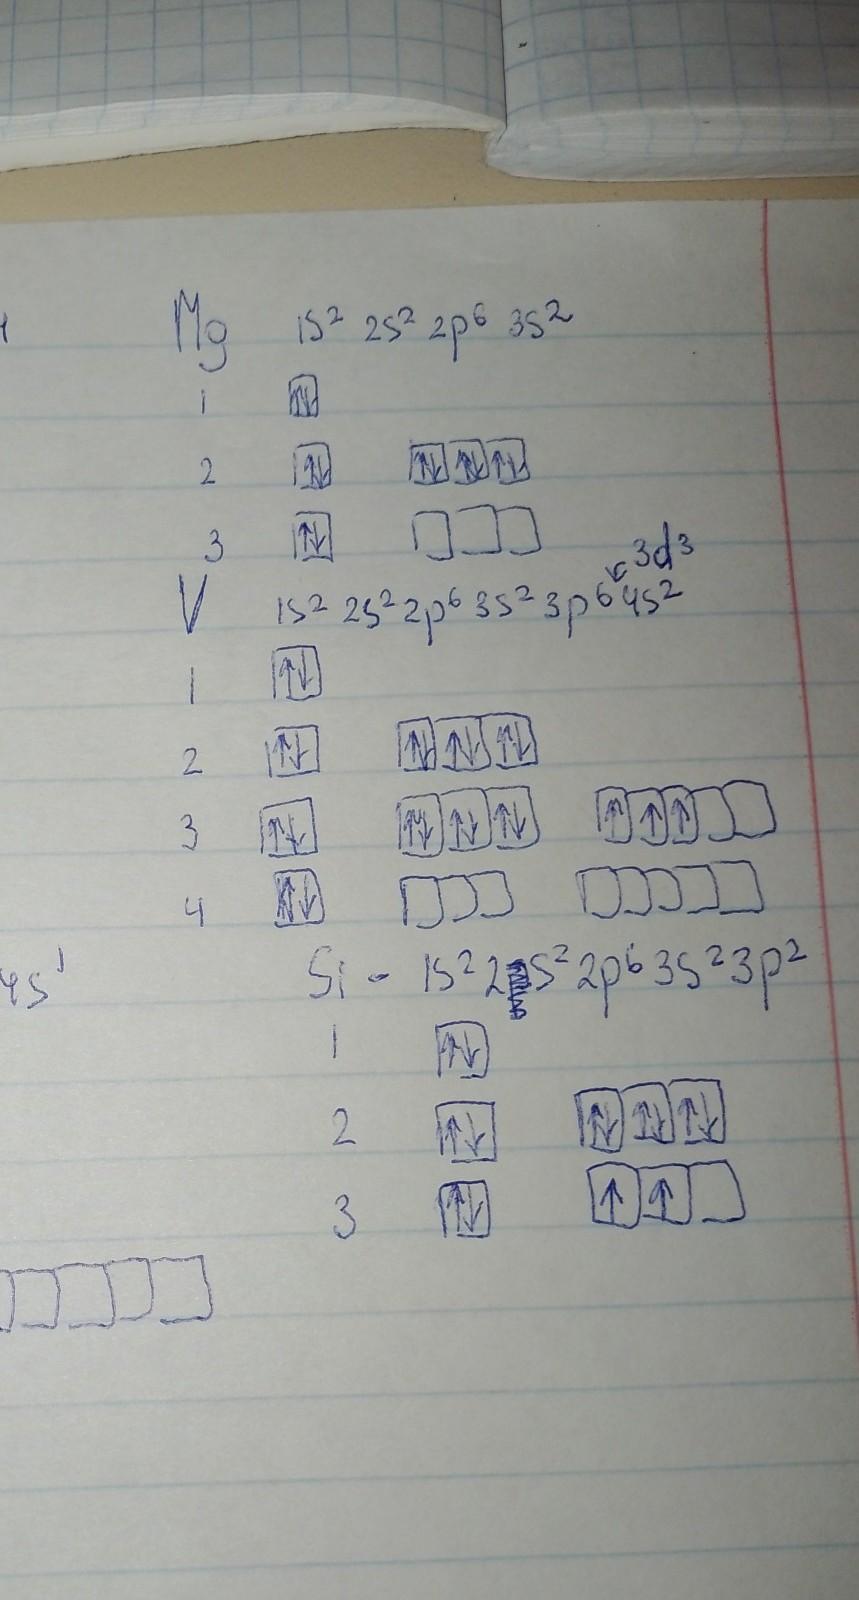 Mg 1s² 2s² 2p⁶ 3s²
1 ↑↓
2 ↑↓ ↑↓ ↑↓ ↑↓
3 ↑↓
3d³
V 1s² 2s² 2p⁶ 3s² 3p⁶ 4s²
1 ↑↓
2 ↑↓ ↑↓ ↑↓ ↑↓
3 ↑↓ ↑↓ ↑↓ ↑↓ ↑ ↑ ↑
4 ↑↓
4s¹
Si - 1s² 2s² 2p⁶ 3s² 3p²
1 ↑↓
2 ↑↓ ↑↓ ↑↓ ↑↓
3 ↑↓ ↑ ↑